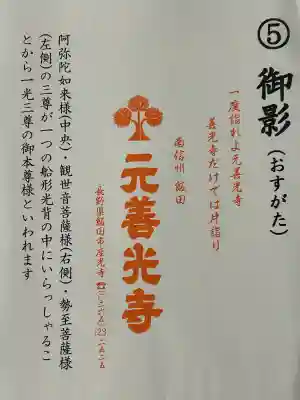 ⑤御影(おすがた)
一度詣れよ元善光寺
善光寺だけでは片詣り
南信州 飯田
元善光寺
長野県飯田市座光寺
阿弥陀如来様(中央)・観世音菩薩様(右側)・勢至菩薩様
(左側)の三尊が一つの船形光背の中にいらっしゃるこ
とから一光三尊の御本尊様といわれます